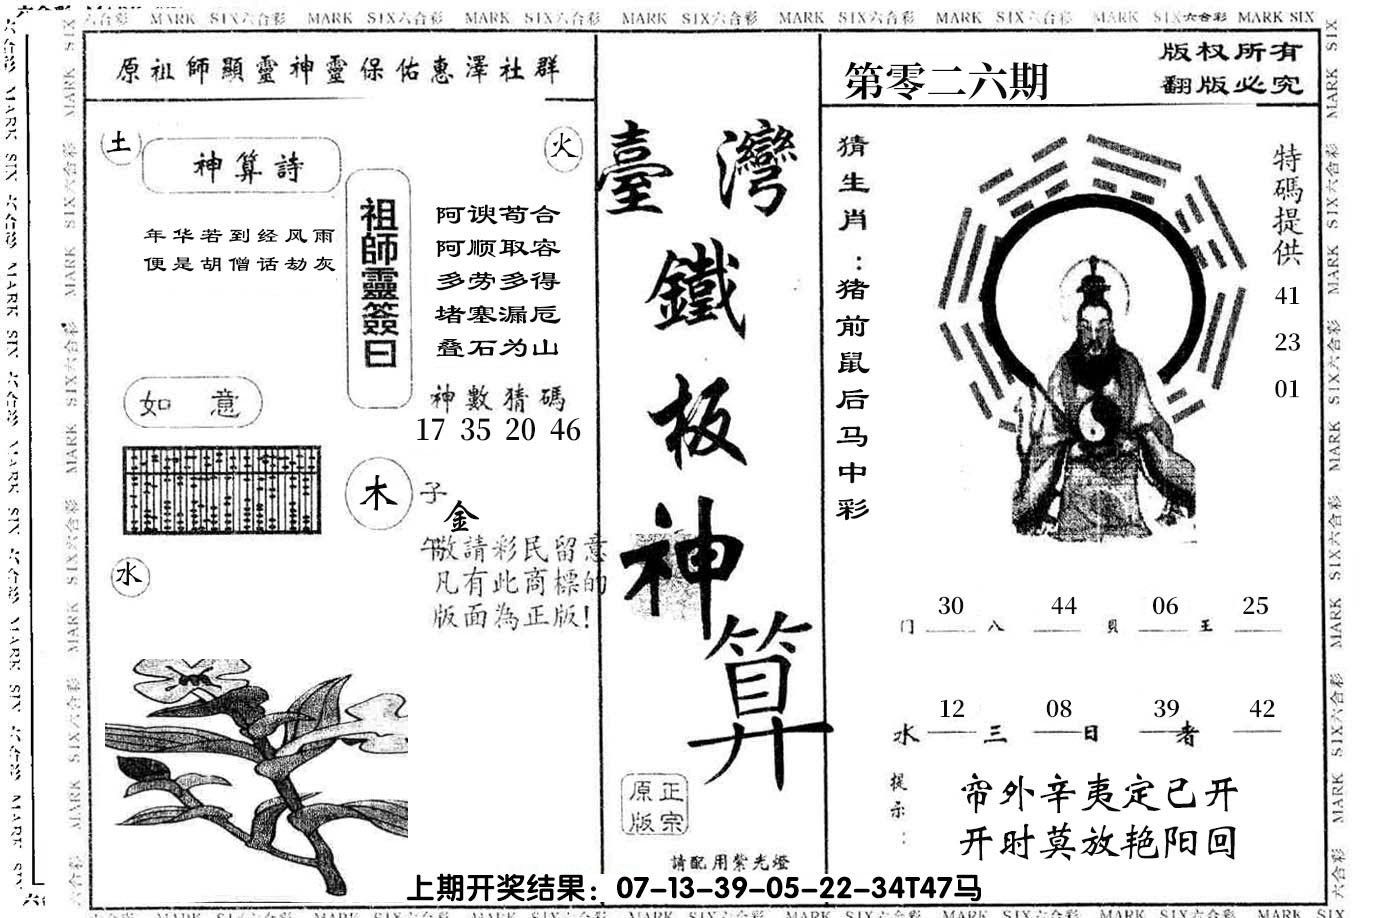 MARK SIX六合彩 MARK SIX六合彩 MARK SIX六合彩 MARK SIX六合彩 MARK SIX六合彩 MARK SIX六合彩 MARK SIX六合彩 MARK SIX
原祖師顯靈神靈保佑惠澤社群
土
神算詩
火
年华若到经风雨
便是胡僧话劫灰
祖師靈簽曰
阿谀苟合
阿顺取容
多劳多得
堵塞漏卮
叠石为山
如意
神數猜碼
17 35 20 46
木
子
金
午
敬請彩民留意
凡有此商標的
版面為正版!
水
臺灣
鐵
板
神
算
正宗
原版
請配用紫光燈
第零二六期
版权所有
翻版必究
猜生肖:猪前鼠后马中彩
特碼提供
41
23
01
门 30 八 44 貝 06 王 25
水 12 三 08 日 39 者 42
提示:
帘外辛夷定已开
开时莫放艳阳回
上期开奖结果：07-13-39-05-22-34T47马